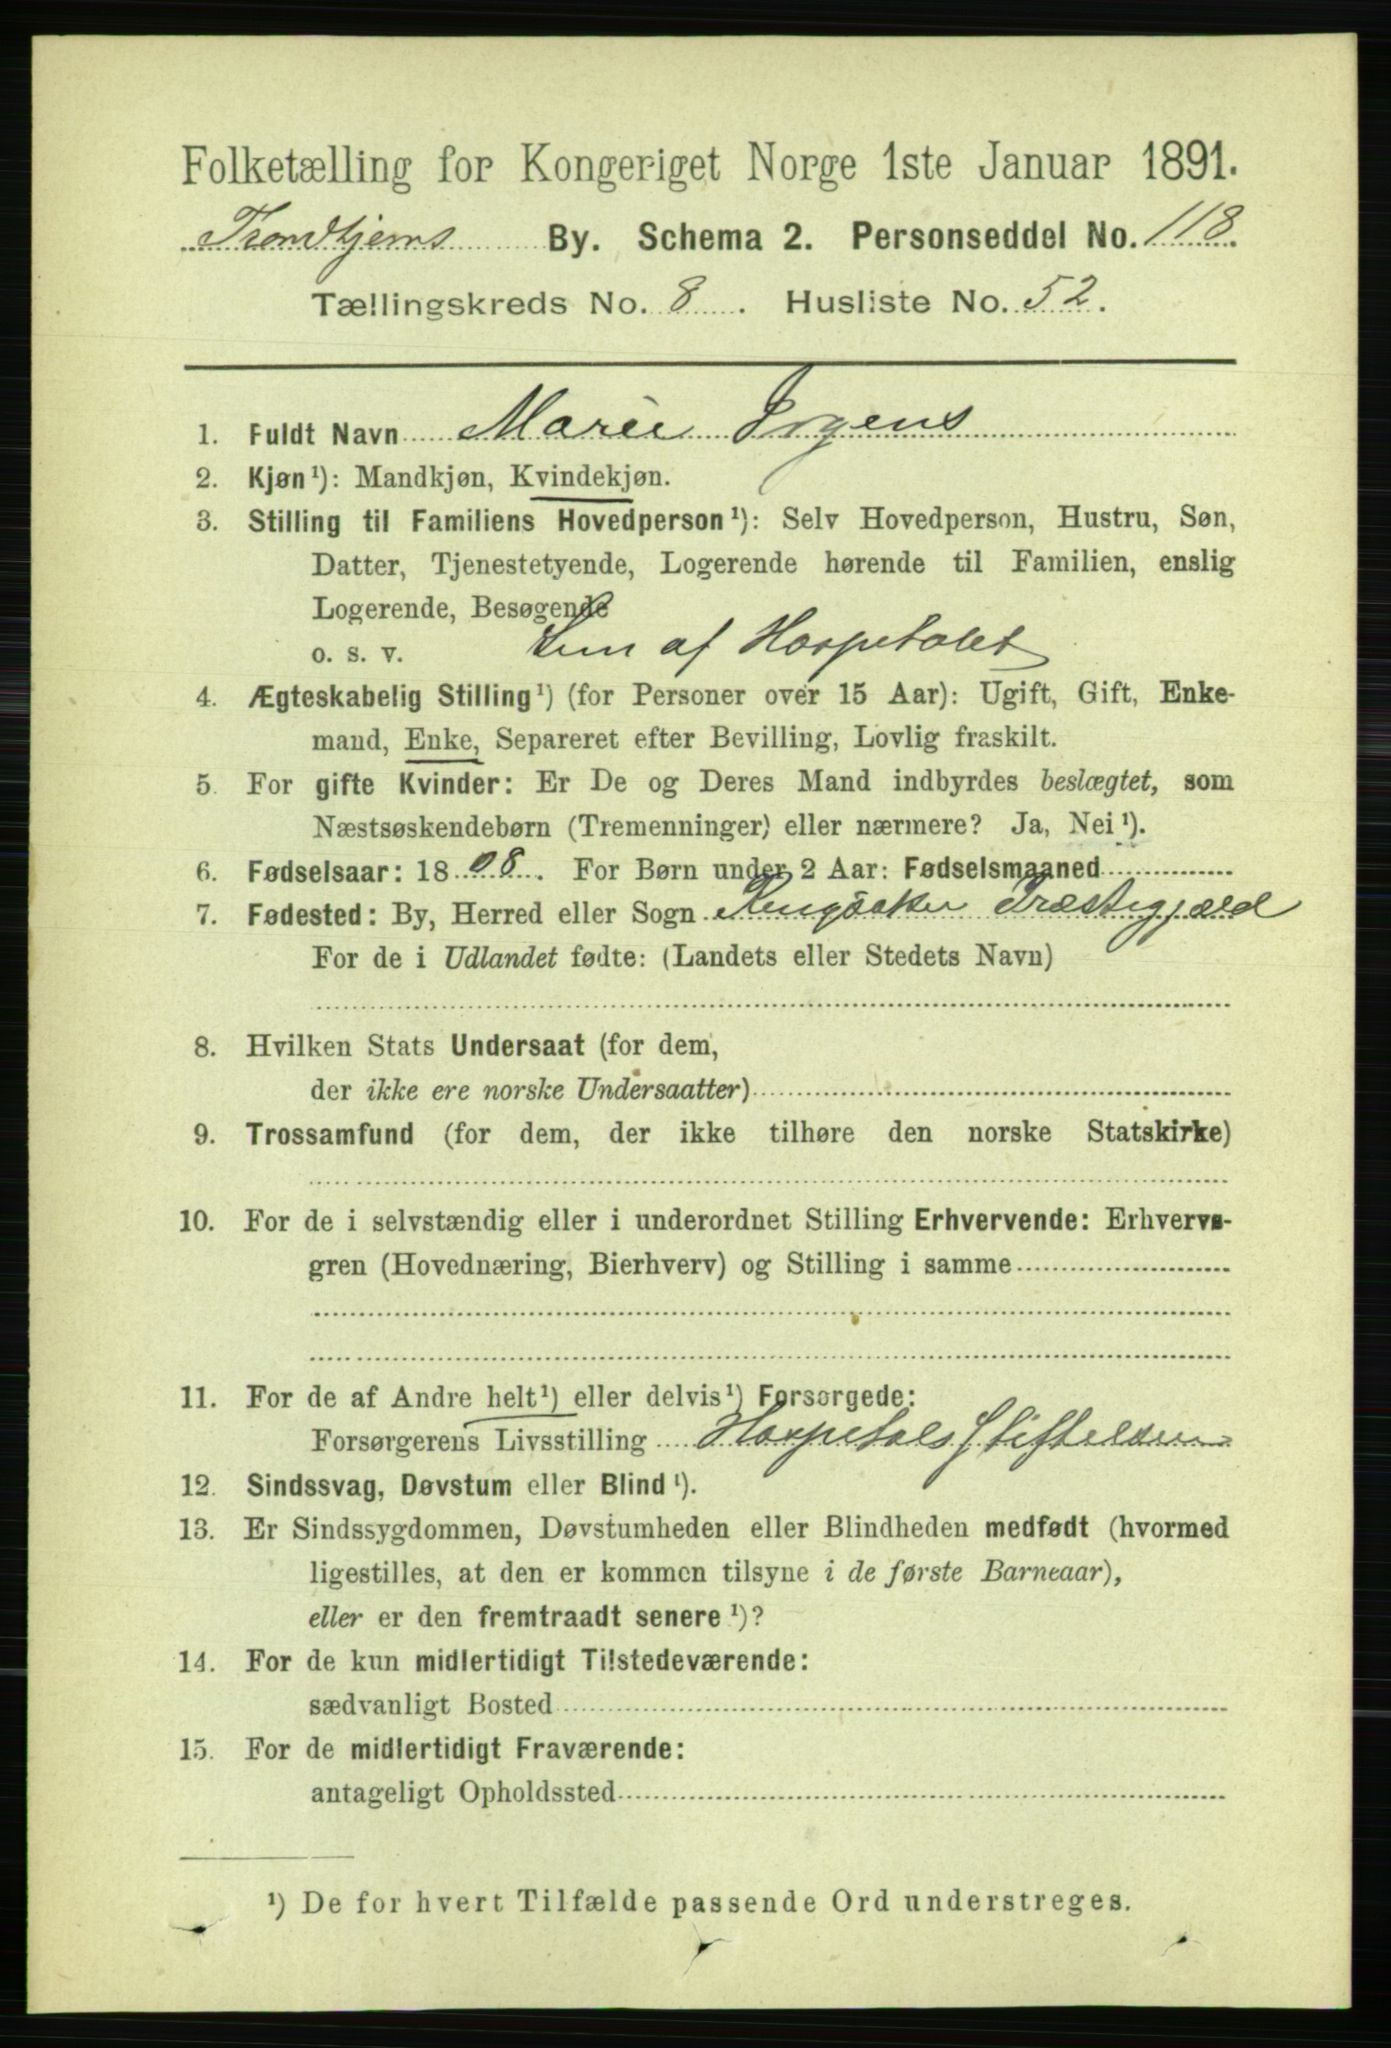 Folketælling for Kongeriget Norge 1ste Januar 1891.
Trondhjems By. Schema 2. Personseddel No. 118.
Tællingskreds No. 8. Husliste No. 52.
1. Fuldt Navn Marie Irgens
2. Kjøn¹): Mandkjøn, Kvindekjøn.
3. Stilling til Familiens Hovedperson¹): Selv Hovedperson, Hustru, Søn,
Datter, Tjenestetyende, Logerende hørende til Familien, enslig
Logerende, Besøgende
o. s. v. Lem af Hospitalet
4. Ægteskabelig Stilling¹) (for Personer over 15 Aar): Ugift, Gift, Enke-
mand, Enke, Separeret efter Bevilling, Lovlig fraskilt.
5. For gifte Kvinder: Er De og Deres Mand indbyrdes beslægtet, som
Næstsøskendebørn (Tremenninger) eller nærmere? Ja, Nei¹).
6. Fødselsaar: 1808. For Børn under 2 Aar: Fødselsmaaned
7. Fødested: By, Herred eller Sogn Ringsaker Præstegjæld
For de i Udlandet fødte: (Landets eller Stedets Navn)
8. Hvilken Stats Undersaat (for dem,
der ikke ere norske Undersaatter)
9. Trossamfund (for dem, der ikke tilhøre den norske Statskirke)
10. For de i selvstændig eller i underordnet Stilling Erhvervende: Erhvervs-
gren (Hovednæring, Bierhverv) og Stilling i samme
11. For de af Andre helt¹) eller delvis¹) Forsørgede:
Forsørgerens Livsstilling Hospitals Stiftelsen
12. Sindssvag, Døvstum eller Blind¹).
13. Er Sindssygdommen, Døvstumheden eller Blindheden medfødt (hvormed
ligestilles, at den er kommen tilsyne i de første Barneaar),
eller er den fremtraadt senere¹)?
14. For de kun midlertidigt Tilstedeværende:
sædvanligt Bosted
15. For de midlertidigt Fraværende:
antageligt Opholdssted
¹) De for hvert Tilfælde passende Ord understreges.